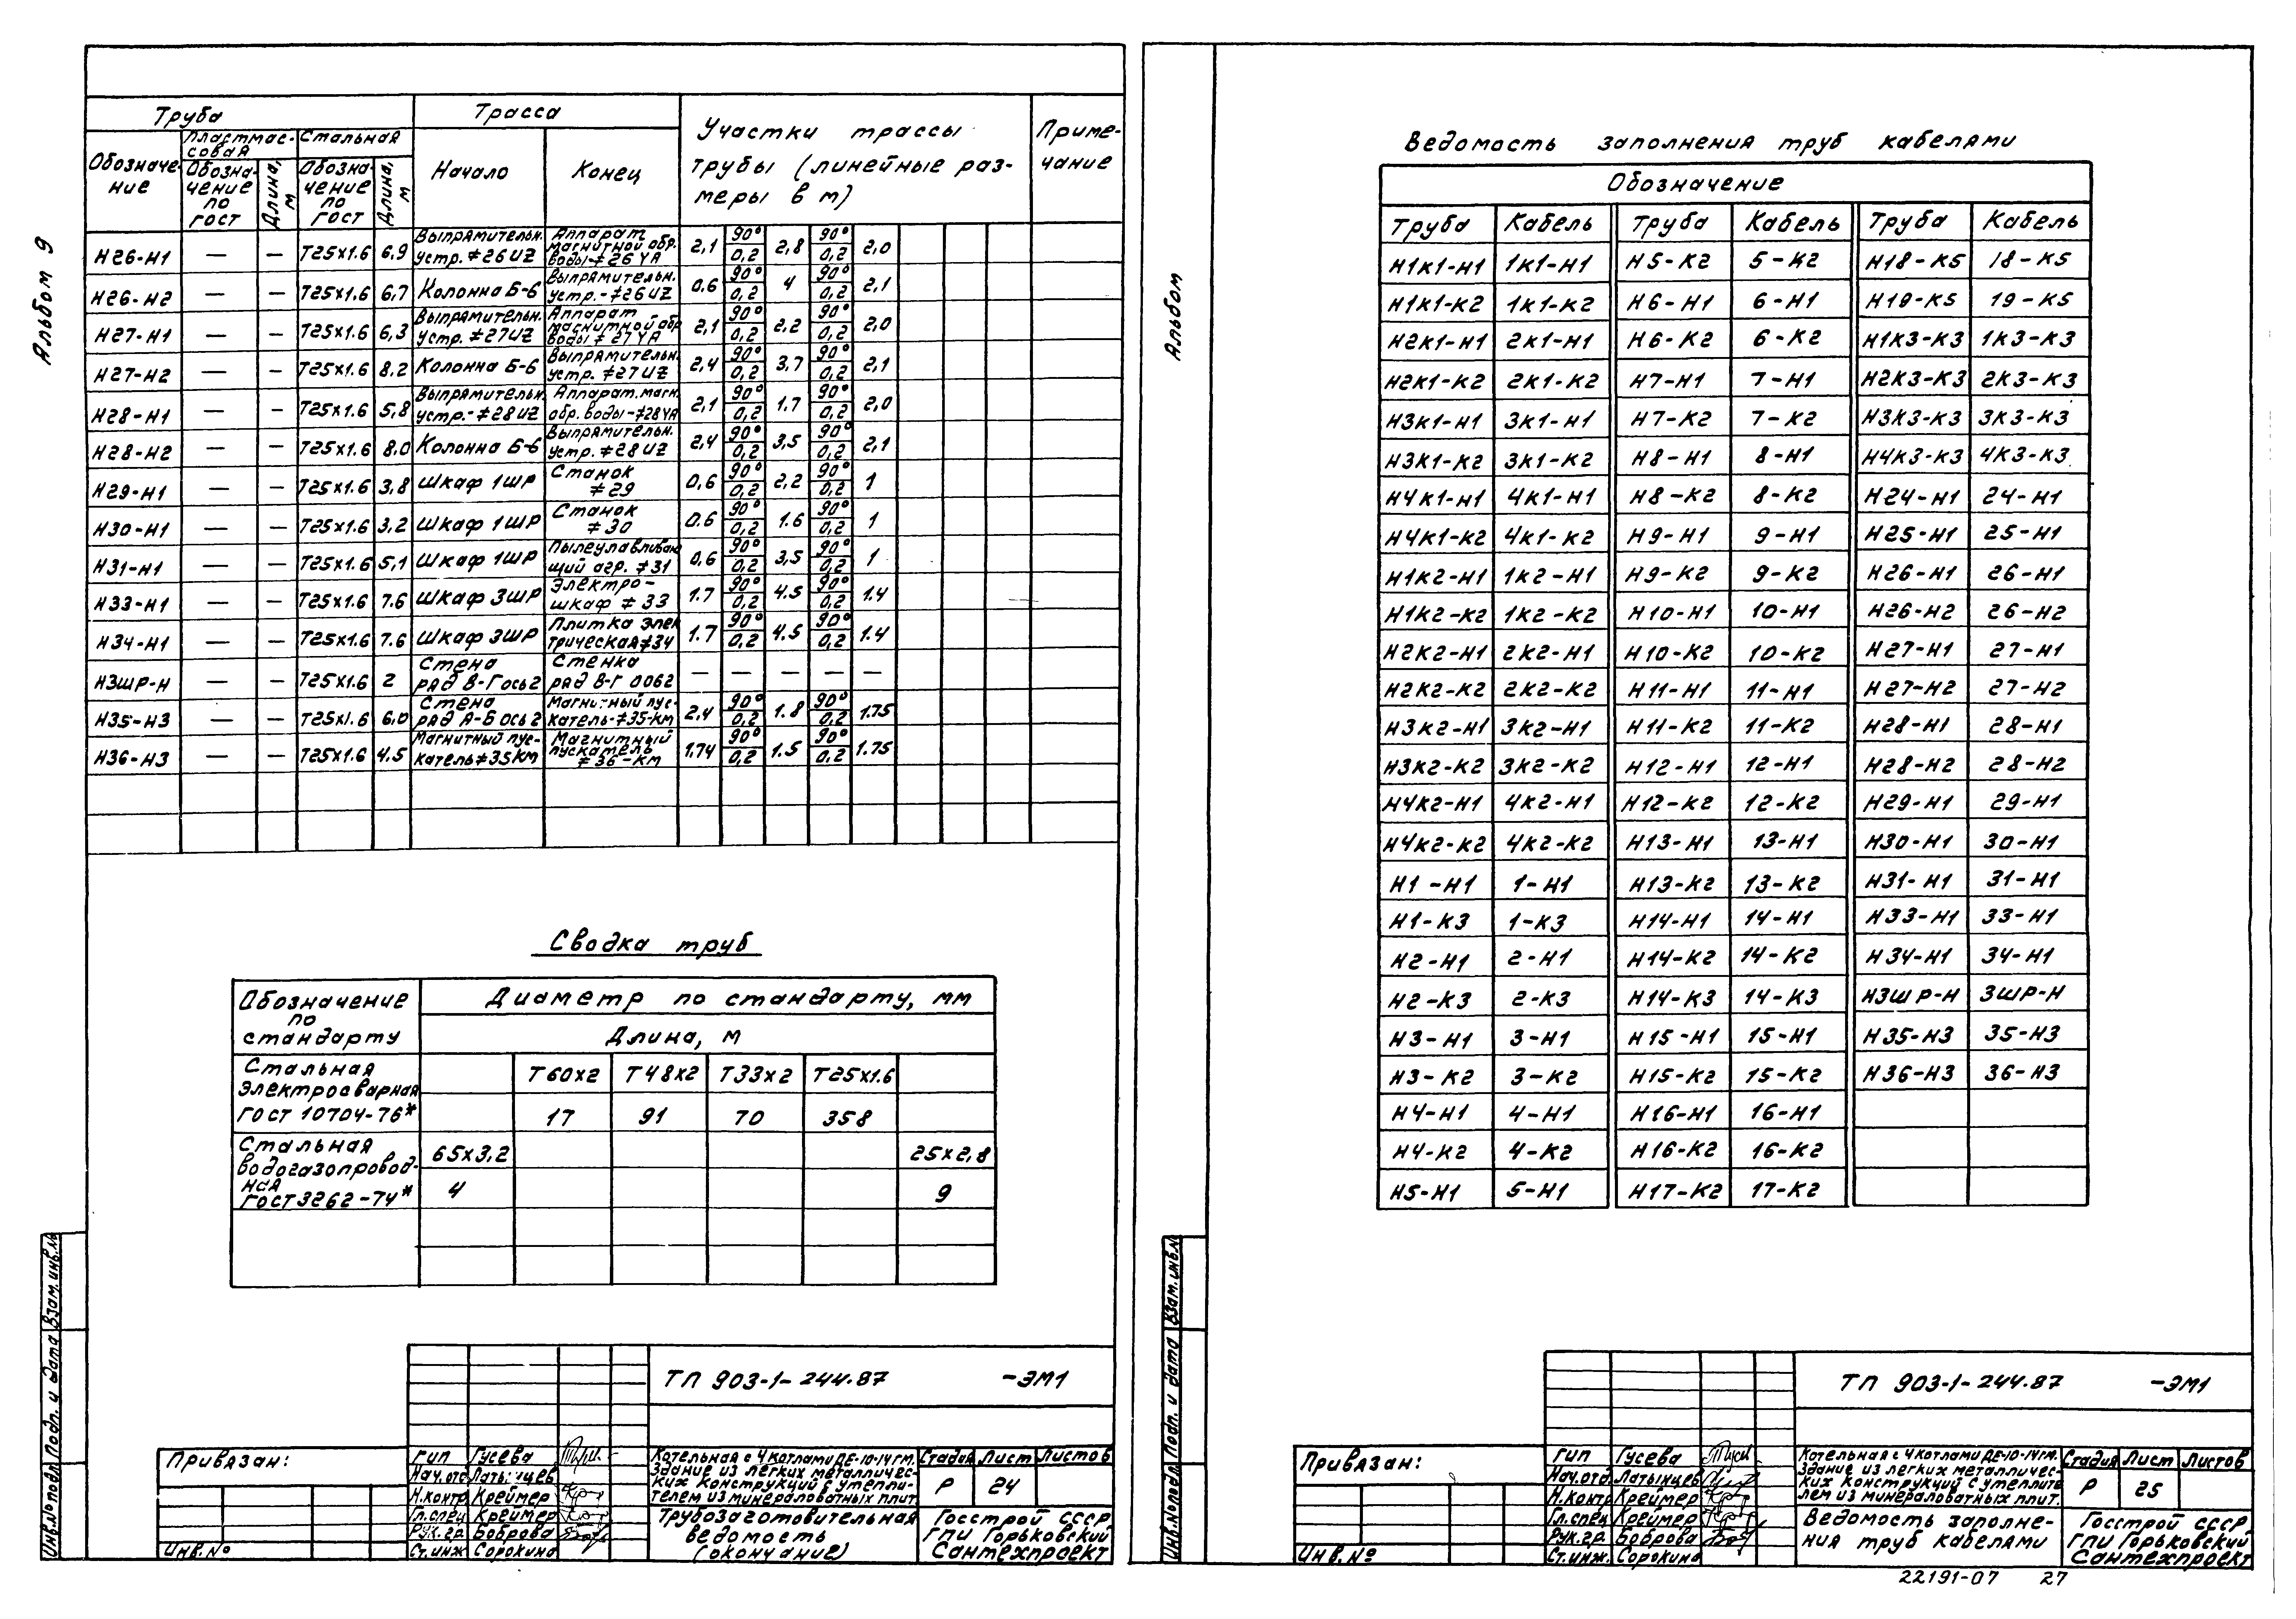 Альбом 9
Труба | Трасса | Участки трассы трубы (линейные размеры в м) | Примечание
Обозначение | Пластмассовая | Стальная | Начало | Конец
Обозначение по ГОСТ | Длина, м | Обозначение по ГОСТ | Длина, м
Н26-Н1 | — | — | Т25х1.6 | 6,9 | Выпрямительн. устр. ≠26UZ | Аппарат магнитной обр. воды-≠26YA | 2,1 | 90° 0,2 | 2,8 | 90° 0,2 | 2,0
Н26-Н2 | — | — | Т25х1.6 | 6,7 | Колонна Б-6 | Выпрямительн. устр.-≠26UZ | 0,6 | 90° 0,2 | 4 | 90° 0,2 | 2,1
Н27-Н1 | — | — | Т25х1.6 | 6,3 | Выпрямительн. устр. ≠27UZ | Аппарат магнитной обр воды ≠27YA | 2,1 | 90° 0,2 | 2,2 | 90° 0,2 | 2,0
Н27-Н2 | — | — | Т25х1.6 | 8,2 | Колонна Б-6 | Выпрямительн. устр. ≠27UZ | 2,4 | 90° 0,2 | 3,7 | 90° 0,2 | 2,1
Н28-Н1 | — | — | Т25х1.6 | 5,8 | Выпрямительн. устр.-≠28UZ | Аппарат.магн. обр. воды-≠28YA | 2,1 | 90° 0,2 | 1.7 | 90° 0,2 | 2,0
Н28-Н2 | — | — | Т25х1.6 | 8,0 | Колонна Б-6 | Выпрямительн. устр. ≠28UZ | 2,4 | 90° 0,2 | 3,5 | 90° 0,2 | 2,1
Н29-Н1 | — | — | Т25х1.6 | 3,8 | Шкаф 1ШР | Станок ≠29 | 0,6 | 90° 0,2 | 2,2 | 90° 0,2 | 1
Н30-Н1 | — | — | Т25х1.6 | 3,2 | Шкаф 1ШР | Станок ≠30 | 0.6 | 90° 0,2 | 1.6 | 90° 0,2 | 1
Н31-Н1 | — | — | Т25х1.6 | 5,1 | Шкаф 1ШР | Пылеулавливающий агр. ≠31 | 0,6 | 90° 0,2 | 3,5 | 90° 0,2 | 1
Н33-Н1 | — | — | Т25х1.6 | 7.6 | Шкаф 3ШР | Электрошкаф ≠33 | 1.7 | 90° 0,2 | 4.5 | 90° 0,2 | 1.4
Н34-Н1 | — | — | Т25х1.6 | 7.6 | Шкаф 3ШР | Плитка электрическая≠34 | 1.7 | 90° 0,2 | 4.5 | 90° 0,2 | 1.4
Н3ШР-Н | — | — | Т25х1.6 | 2 | Стена ряд В-Г ось 2 | Стенка ряд В-Г 0062 | — | — | — | — | —
Н35-Н3 | — | — | Т25х1.6 | 6,0 | Стена ряд А-Б ось 2 | Магнитный пускатель-≠35-КМ | 2,4 | 90° 0,2 | 1.8 | 90° 0,2 | 1.75
Н36-Н3 | — | — | Т25х1.6 | 4.5 | Магнитный пускатель≠35КМ | Магнитный пускатель ≠36-КМ | 1.74 | 90° 0,2 | 1.5 | 90° 0,2 | 1.75
Сводка труб
Обозначение по стандарту | Диаметр по стандарту, мм
Длина, м
Стальная электросварная ГОСТ 10704-76* | Т60х2 | Т48х2 | Т33х2 | Т25х1.6
17 | 91 | 70 | 358
Стальная водогазопроводная ГОСТ 3262-74* | 65х3,2 | 25х2,8
4 | 9
ТП 903-1-244.87 -ЭМ1
Привязан:
Инв.№
ГИП Гусева
Нач.отд Латынцев
Н.контр Креймер
Гл.спец Креймер
Рук.гр. Боброва
Ст.инж Сорокина
Котельная с 4 котлами ДЕ-10-14ГМ.
Здание из легких металличес-
ких конструкций с утепли-
телем из минераловатных плит.
Стадия | Лист | Листов
Р | 24
Трубозаготовительная
ведомость
(окончание)
Госстрой СССР
ГПИ Горьковский
Сантехпроект
Инв.№ подл. Подп. и дата Взам.инв.№
Альбом
Ведомость заполнения труб кабелями
Обозначение
Труба | Кабель | Труба | Кабель | Труба | Кабель
Н1К1-Н1 | 1К1-Н1 | Н5-К2 | 5-К2 | Н18-К5 | 18-К5
Н1К1-К2 | 1К1-К2 | Н6-Н1 | 6-Н1 | Н19-К5 | 19-К5
Н2К1-Н1 | 2К1-Н1 | Н6-К2 | 6-К2 | Н1К3-К3 | 1К3-К3
Н2К1-К2 | 2К1-К2 | Н7-Н1 | 7-Н1 | Н2К3-К3 | 2К3-К3
Н3К1-Н1 | 3К1-Н1 | Н7-К2 | 7-К2 | Н3К3-К3 | 3К3-К3
Н3К1-К2 | 3К1-К2 | Н8-Н1 | 8-Н1 | Н4К3-К3 | 4К3-К3
Н4К1-Н1 | 4К1-Н1 | Н8-К2 | 8-К2 | Н24-Н1 | 24-Н1
Н4К1-К2 | 4К1-К2 | Н9-Н1 | 9-Н1 | Н25-Н1 | 25-Н1
Н1К2-Н1 | 1К2-Н1 | Н9-К2 | 9-К2 | Н26-Н1 | 26-Н1
Н1К2-К2 | 1К2-К2 | Н10-Н1 | 10-Н1 | Н26-Н2 | 26-Н2
Н2К2-Н1 | 2К2-Н1 | Н10-К2 | 10-К2 | Н27-Н1 | 27-Н1
Н2К2-К2 | 2К2-К2 | Н11-Н1 | 11-Н1 | Н27-Н2 | 27-Н2
Н3К2-Н1 | 3К2-Н1 | Н11-К2 | 11-К2 | Н28-Н1 | 28-Н1
Н3К2-К2 | 3К2-К2 | Н12-Н1 | 12-Н1 | Н28-Н2 | 28-Н2
Н4К2-Н1 | 4К2-Н1 | Н12-К2 | 12-К2 | Н29-Н1 | 29-Н1
Н4К2-К2 | 4К2-К2 | Н13-Н1 | 13-Н1 | Н30-Н1 | 30-Н1
Н1-Н1 | 1-Н1 | Н13-К2 | 13-К2 | Н31-Н1 | 31-Н1
Н1-К3 | 1-К3 | Н14-Н1 | 14-Н1 | Н33-Н1 | 33-Н1
Н2-Н1 | 2-Н1 | Н14-К2 | 14-К2 | Н34-Н1 | 34-Н1
Н2-К3 | 2-К3 | Н14-К3 | 14-К3 | Н3ШР-Н | 3ШР-Н
Н3-Н1 | 3-Н1 | Н15-Н1 | 15-Н1 | Н35-Н3 | 35-Н3
Н3-К2 | 3-К2 | Н15-К2 | 15-К2 | Н36-Н3 | 36-Н3
Н4-Н1 | 4-Н1 | Н16-Н1 | 16-Н1
Н4-К2 | 4-К2 | Н16-К2 | 16-К2
Н5-Н1 | 5-Н1 | Н17-К2 | 17-К2
ТП 903-1-244.87 -ЭМ1
Привязан:
Инв.№
ГИП Гусева
Нач.отд Латынцев
Н.контр Креймер
Гл.спец Креймер
Рук.гр. Боброва
Ст.инж. Сорокина
Котельная с 4 котлами ДЕ-10-14ГМ.
Здание из легких металличес-
ких конструкций с утеплите
лем из минераловатных плит.
Стадия | Лист | Листов
Р | 25
Ведомость заполне-
ния труб кабелями
Госстрой СССР
ГПИ Горьковский
Сантехпроект
Инв.№подл. Подп. и дата Взам.инв.№
22191-07 27